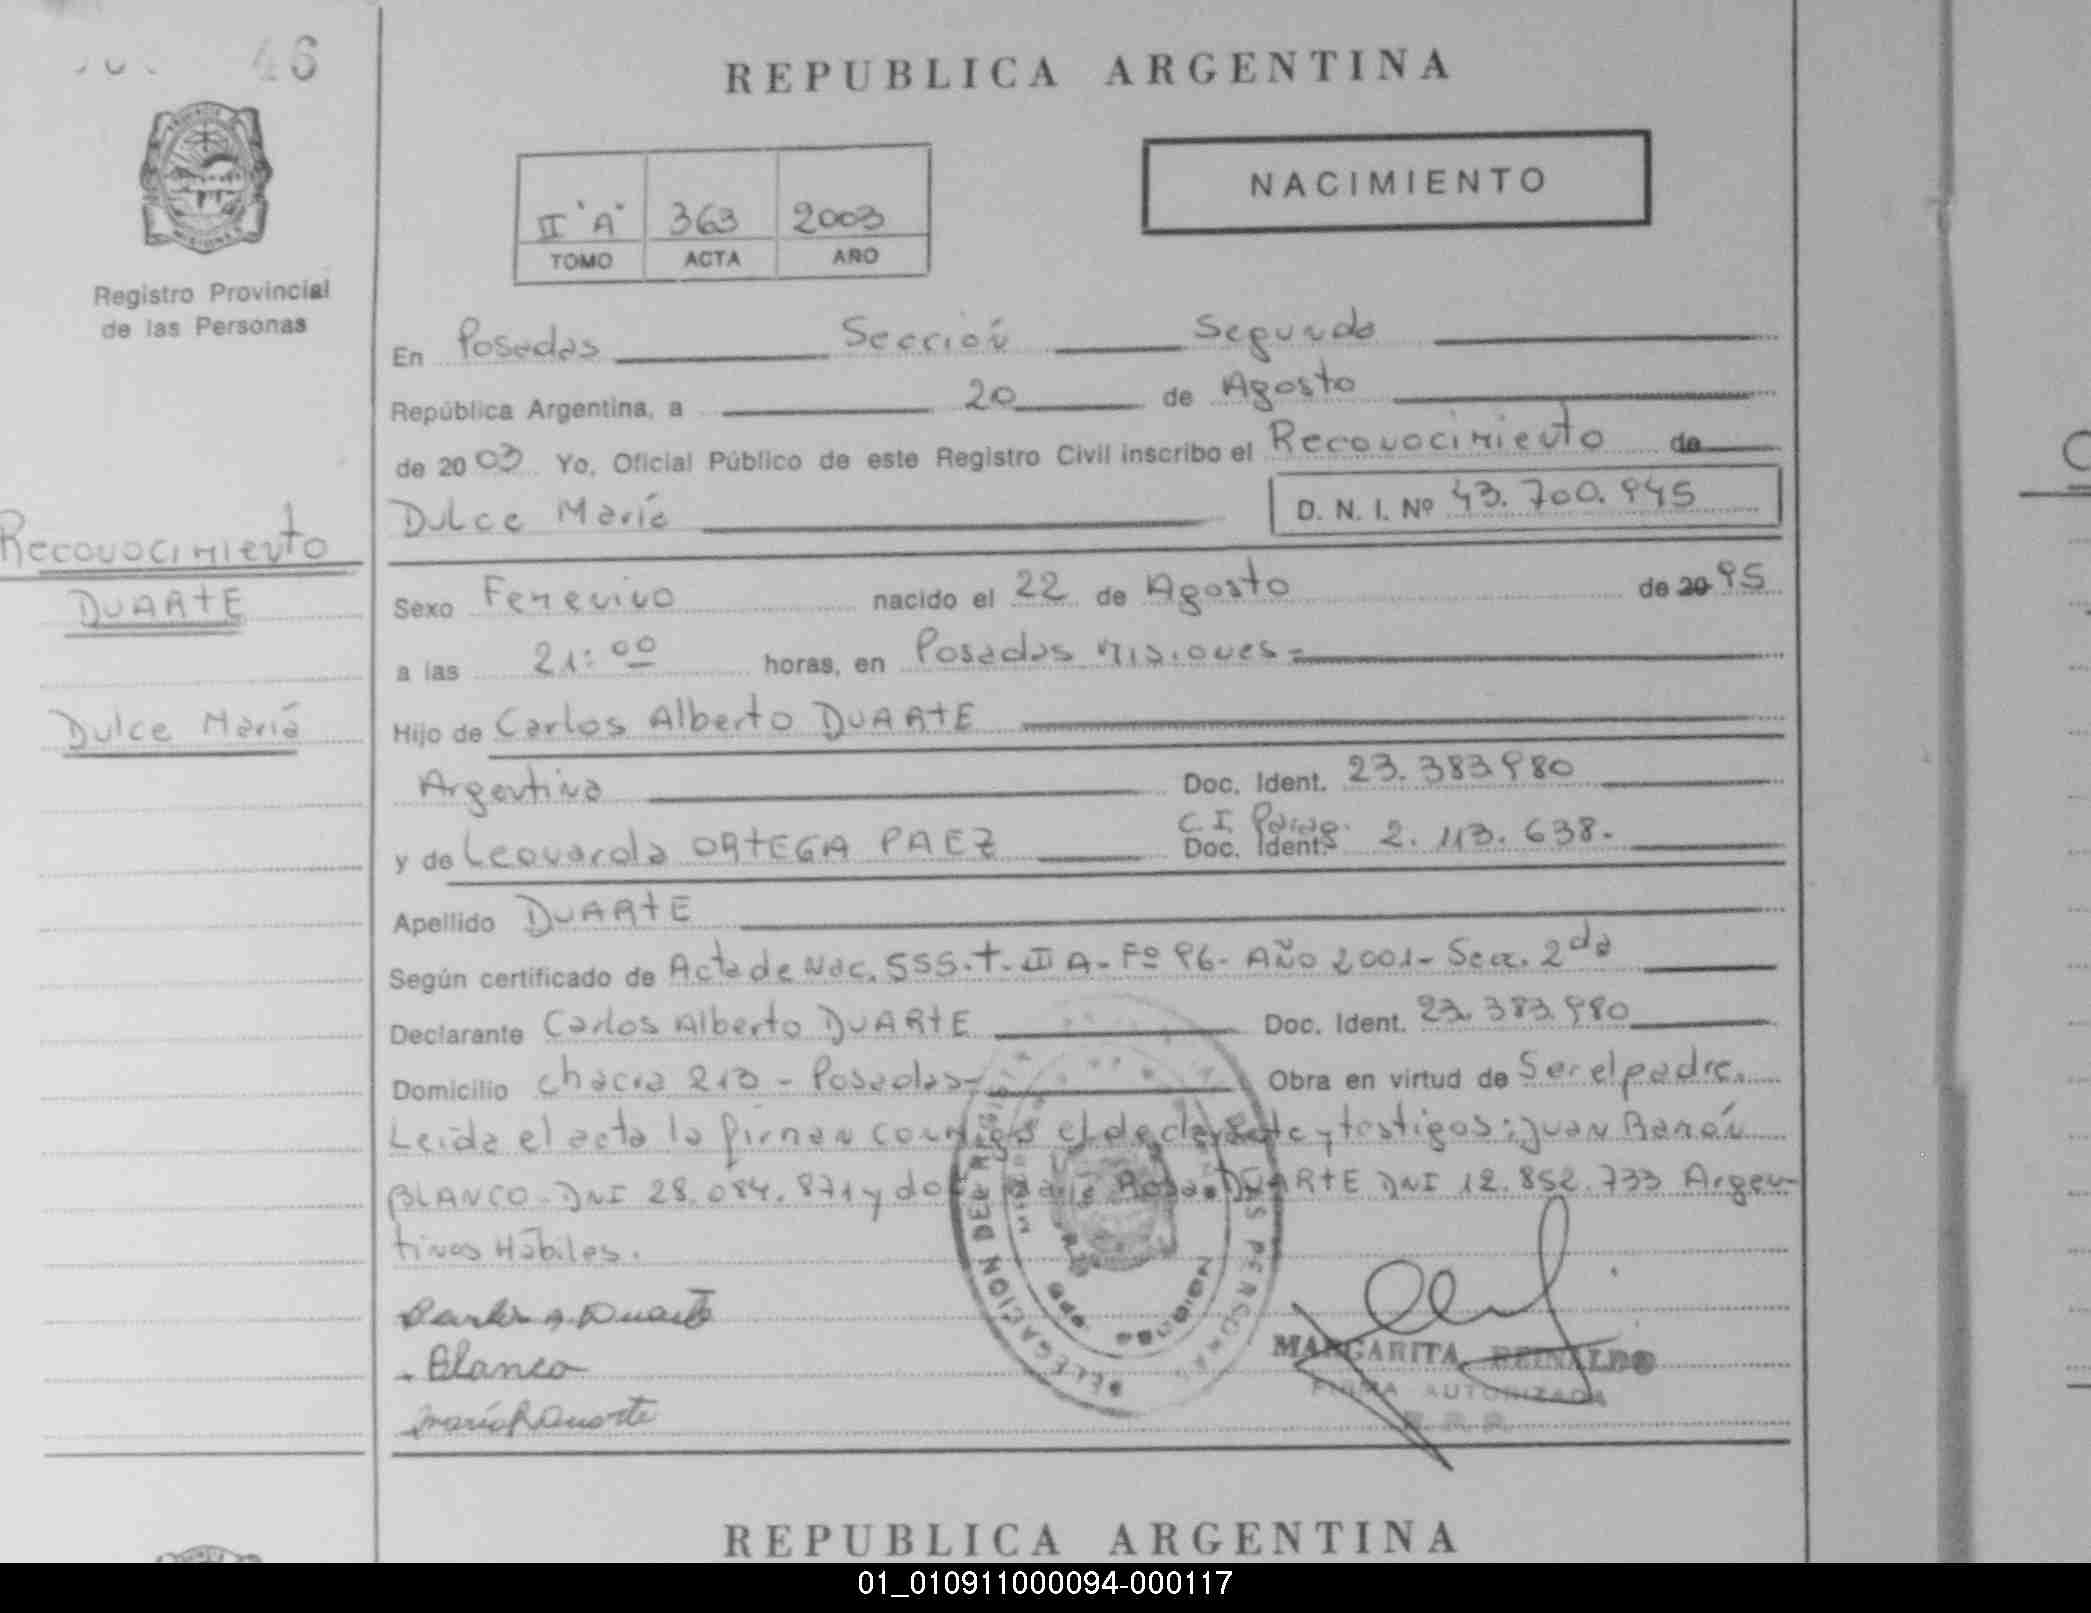 46
REPUBLICA ARGENTINA
NACIMIENTO
II "A" 363 2003
TOMO ACTA AÑO
Registro Provincial
de las Personas
En Posadas Sección Segunda
República Argentina, a 20 de Agosto
de 2003 Yo, Oficial Público de este Registro Civil inscribo el Reconocimiento de
Dulce María D. N. I. Nº 43.700.945
Reconocimiento
DUARTE
Dulce María
Sexo Femenino nacido el 22 de Agosto de 20 95
a las 21:00 horas, en Posadas Misiones=
Hijo de Carlos Alberto DUARTE
Argentina Doc. Ident. 23.383.980
y de Leonarda ORTEGA PAEZ C.I. Doc. Ident. 2.113.638.
Apellido DUARTE
Según certificado de Acta de Nac. 555.T.II A-Fº 96- AÑO 2001- Secc. 2da
Declarante Carlos Alberto DUARTE Doc. Ident. 23.383.980
Domicilio chacra 213 - Posadas- Obra en virtud de Ser el padre.
Leída el acta la firman conmigo el declarante y testigos: Juan Ramón
BLANCO-DNI 28.084.871 y doña María Rosa DUARTE DNI 12.852.733 Argen-
tinos Hábiles.
Carlos A. Duarte
Blanco
María R Duarte
DELEGACION DEL REGISTRO DE LAS PERSONAS
MARGARITA REINALDO
FIRMA AUTORIZADA
REPUBLICA ARGENTINA
01_010911000094-000117